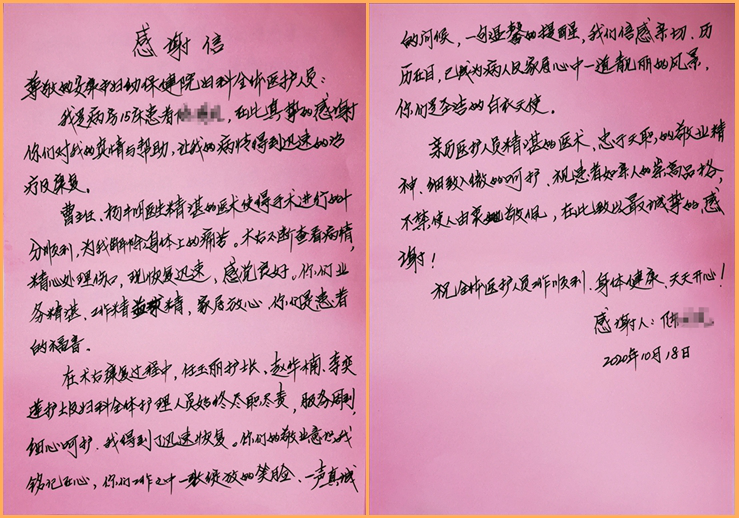 感谢信
尊敬的 妇幼保健院妇科全体医护人员:
我是病房15床患者 ,在此真挚的感谢
你们对我的真情与帮助,让我的病情得到迅速的治
疗及康复。
曹主任、杨 医生精湛的医术使得手术进行的十
分顺利,为我解除身体上的痛苦。术后不断查看病情,
精心处理伤口,现恢复迅速,感觉良好。你们业
务精湛、工作精益求精,家属放心,你们是患者
的福音。
在术后康复过程中,任玉丽护士长、赵华楠、李奕
莲护士及妇科全体护理人员始终尽职尽责,服务周到,
细心呵护,我得到了迅速恢复。你们的敬业意识我
铭记在心,你们工作之中一张绽放的笑脸、一声真诚
的问候,一句温馨的提醒,我们倍感亲切、历
历在目,已成为病人及家属心中一道靓丽的风景,
你们是合格的白衣天使。
亲历医护人员精湛的医术、忠于天职,的敬业精
神、细致入微的呵护、视患者如亲人的崇高品格,
不禁使人由衷地敬佩,在此致以最诚挚的感
谢!
祝全体医护人员工作顺利、身体健康、天天开心!
感谢人:陈
2020年10月18日